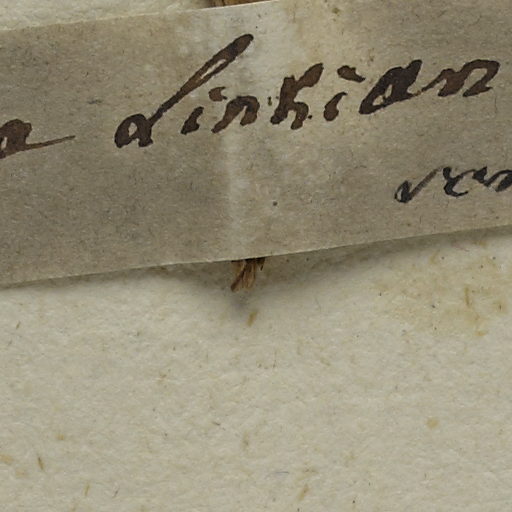 a Linkian